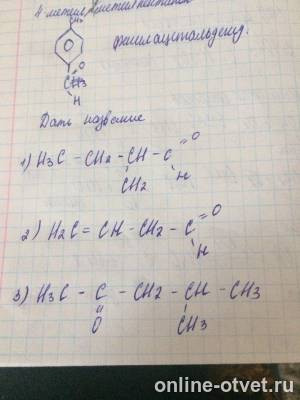 4-метил
CH3
O
H
фенилацетальдегид.
Дать название
1) H3C - CH2 - CH - C = O
CH2 H
2) H2C = CH - CH2 - C = O
H
3) H3C - C - CH2 - CH - CH3
O CH3
online-otvet.ru